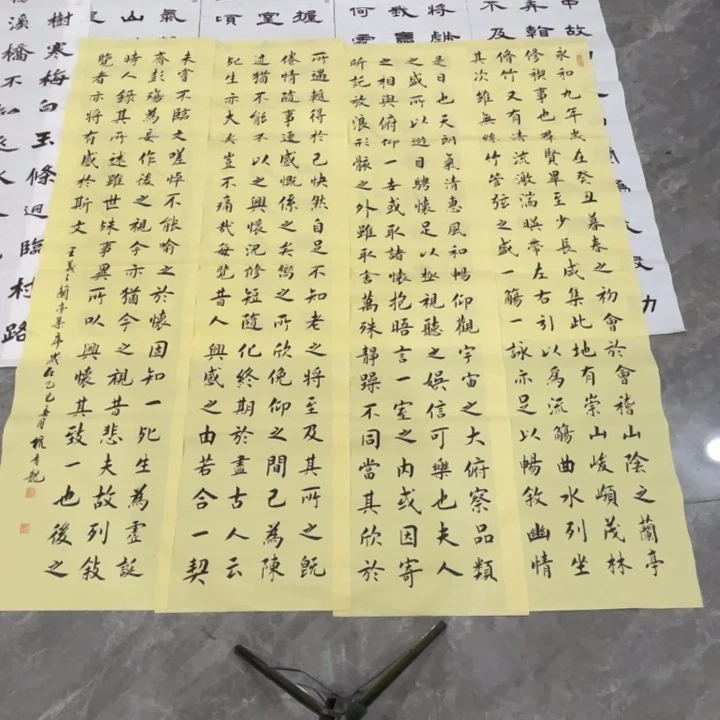 永和九年歲在癸丑暮春之初會於會稽山陰之蘭亭
修禊事也群賢畢至少長咸集此地有崇山峻嶺茂林
脩竹又有清流激湍暎帶左右引以為流觴曲水列坐
其次雖無絲竹管弦之盛一觴一詠亦足以暢敘幽情
是日也天朗氣清惠風和暢仰觀宇宙之大俯察品類
之盛所以遊目騁懷足以極視聽之娛信可樂也夫人
之相與俯仰一世或取諸懷抱晤言一室之內或因寄
所託放浪形骸之外雖取舍萬殊靜躁不同當其欣於
所遇輒得於己怏然自足不知老之將至及其所之既
倦情隨事遷感慨係之矣嚮之所欣俛仰之間已為陳
迹猶不能不以之興懷況修短隨化終期於盡古人云
死生亦大矣豈不痛哉每覽昔人興感之由若合一契
未嘗不臨文嗟悼不能喻之於懷固知一死生為虛誕
齊彭殤為妄作後之視今亦猶今之視昔悲夫故列敘
時人錄其所述雖世殊事異所以興懷其致一也後之
覽者亦將有感於斯文
王羲之蘭亭集序歲在乙巳
申故
弄翰
不及
將
我
何
握
室
頃
氣
山
樹寒梅白玉條迥臨村路
溪橋不知近水